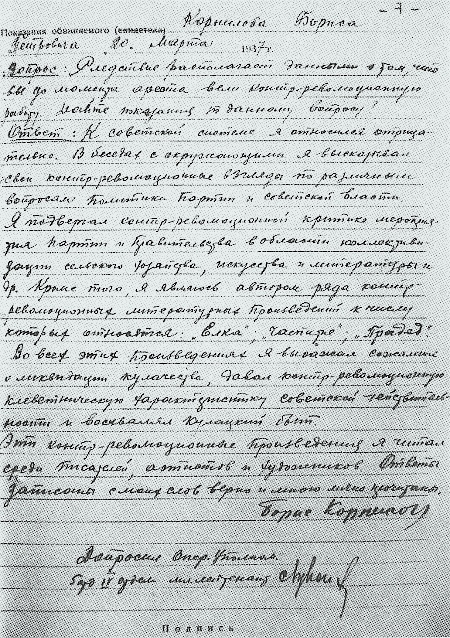 - 1 -
Корнилова Бориса
Показания обвиняемого (свидетеля)
Петровича 20. Марта 1937 г.
Вопрос: Следствие располагает данными о том, что
вы до момента ареста вели контр-революционную
работу. Дайте показания по данному вопросу
Ответ: К советской системе я относился отрица-
тельно. В беседах с окружающими я высказывал
свои контр-революционные взгляды по различным
вопросам политики партии и советской власти
Я подвергал контр-революционной критике мероприя-
тия партии и правительства в области коллективи-
зации сельского хозяйства, искусства и литературы и
др. Кроме того я являюсь автором ряда контр-
революционных литературных произведений к числу
которых относятся "Елка", "Чаепитие", "Прадед".
Во всех этих произведениях я выражал сожаление
о ликвидации кулачества, давал контр-революционную
клеветническую характеристику советской действитель-
ности и восхвалял кулацкий быт.
Эти контр-революционные произведения я читал
среди писателей, артистов и художников Ответы
записаны с моих слов верно и мною лично прочитаны.
Борис Корнилов
Допросил Опер. Уполном.
IV отдел мл. лейтенант
Подпись